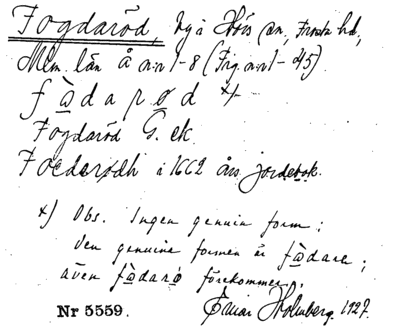 Fogdaröd, by i Hörs sn, Frosta hd,
Mlm. län Å nr 1-8 (Frg nr 1-45).
f à d a r ø d *)
Fogdaröd G. ek.
Foederødh i 1662 års jordebok.
*) Obs. Ingen genuin form;
den genuina formen är fàdarø;
även fàdarö förekommer.
Nr 5559. Einar Holmberg. 1927.